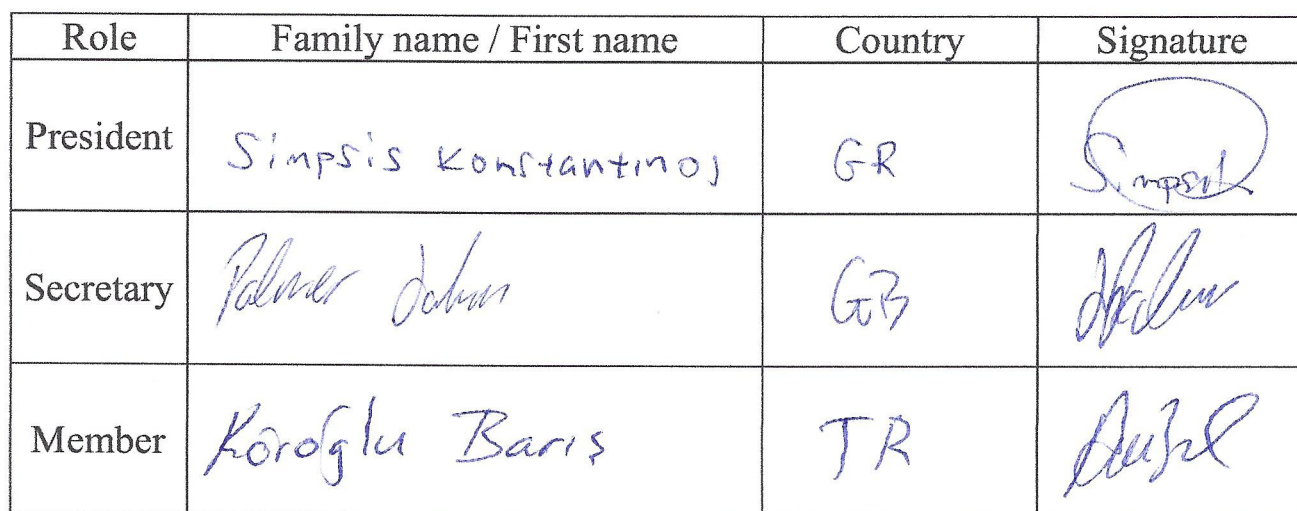 Role Family name / First name Country Signature
President Simpsis Konstantinos GR Simpsis
Secretary Palmer John GB
Member Köroğlu Barış TR